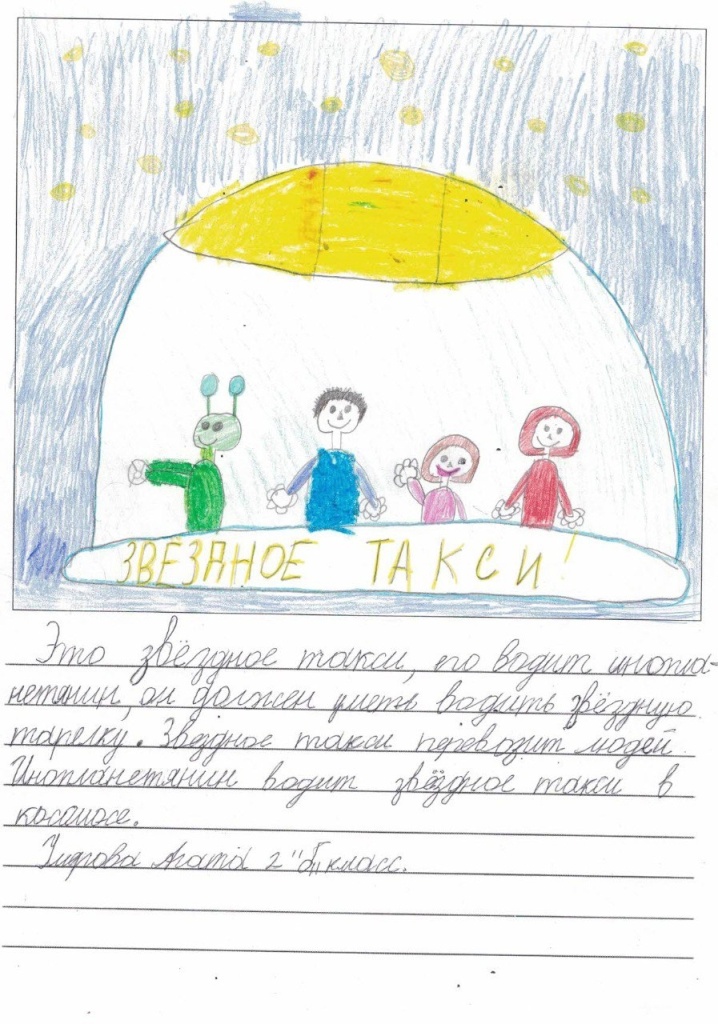 ЗВЁЗДНОЕ ТАКСИ!
Это звёздное такси, его водит инопла-
нетянин, он должен уметь водить звёздную
тарелку. Звездное такси перевозит людей.
Инопланетянин водит звёздное такси в
космосе.
Агата 2 "Б" класс.